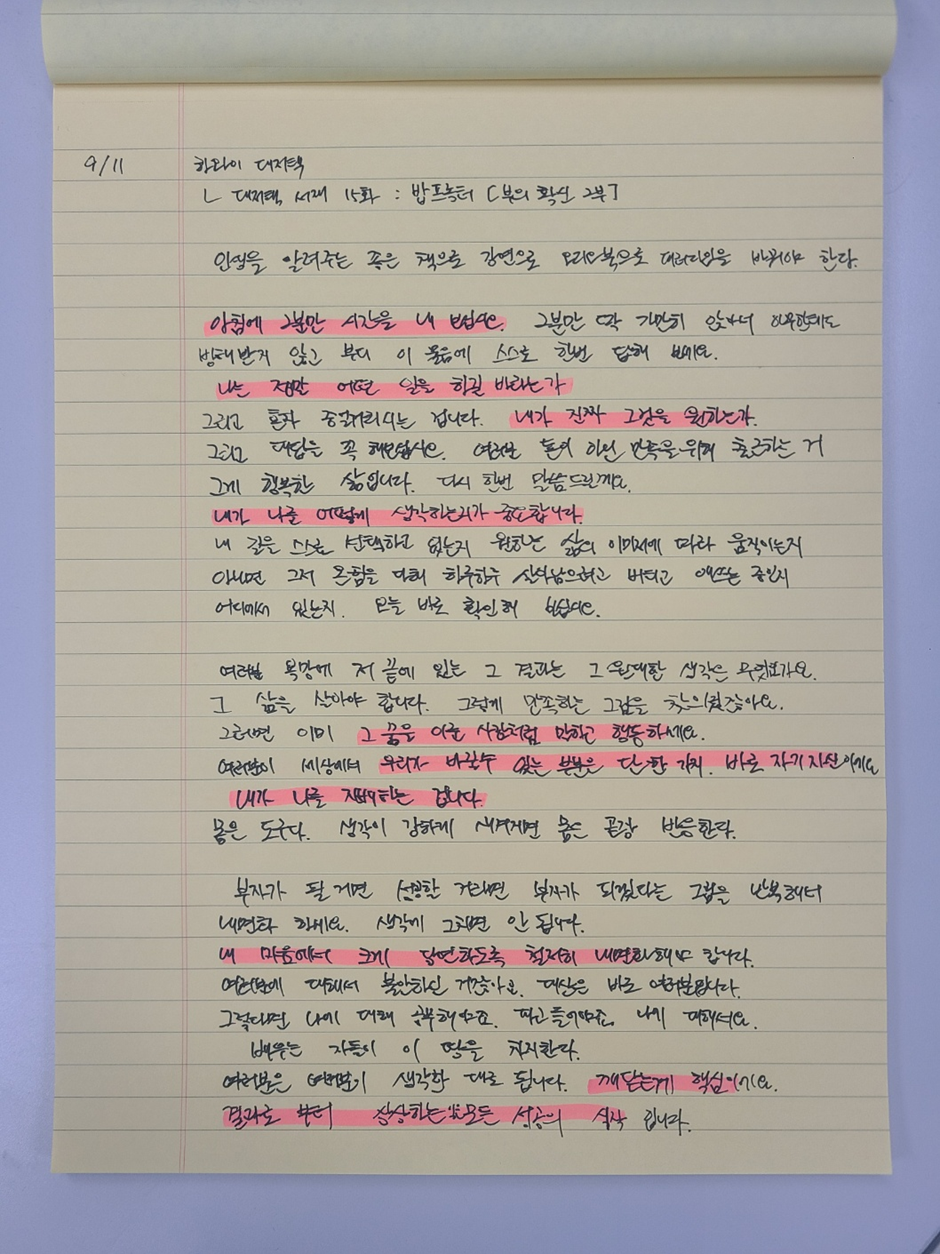 9/11 하와이 대저택
ㄴ 대저택 서재 15화 : 밥프록터 [부의 확신 2부]
인생을 알려주는 좋은 책으로 강연으로 오디오북으로 패러다임을 바꿔야 한다.
아침에 2분만 시간을 내 보십시오. 2분만 딱 가만히 앉아서 아무한테도
방해받지 않고 부디 이 물음에 스스로 한번 답해 보세요.
나는 정말 어떤 일을 하길 바라는가
그리고 혼자 중얼거리시는 겁니다. 내가 진짜 그것을 원하는가.
그리고 대답을 꼭 해보십시오. 여러분 돈이 아닌 만족을 위해 출근하는 거
그게 행복한 삶입니다. 다시 한번 말씀드릴게요.
내가 나를 어떻게 생각하는지가 중요합니다.
내 길을 스스로 선택하고 있는지 원하는 삶의 이미지에 따라 움직이는지
아니면 그저 온힘을 다해 하루하루 살아남으려고 버티고 애쓰는 중인지
어디에서 있는지. 오늘 바로 확인해 보십시오.
여러분 욕망에 저 끝에 있는 그 결과는 그 원대한 생각은 무엇인가요.
그 삶을 살아야 합니다. 그렇게 만족하는 그림을 찾으셨잖아요.
그러면 이미 그 꿈을 이룬 사람처럼 말하고 행동하세요.
여러분이 세상에서 우리가 바꿀수 있는 부분은 단 한 가지. 바로 자기 자신이에요
내가 나를 지배하는 겁니다.
몸은 도구다. 생각이 강하게 새겨지면 몸은 곧장 반응한다.
부자가 될 거면 성공할 거라면 부자가 되겠다는 그림을 반복해서
내면화 하세요. 생각케 그러면 안 됩니다.
내 마음에서 크게 당연하도록 철저히 내면화해야 합니다.
여러분에 대해서 불안하신 거잖아요. 대상은 바로 여러분입니다.
그렇다면 나에 대해 공부해야죠. 파고들어야죠. 나에 대해서요.
배우는 자들이 이 땅을 차지한다.
여러분은 여러분이 생각한 대로 됩니다. 깨닫는게 핵심이에요.
결과로 부터 상상하는 모든 성공의 시작 입니다.